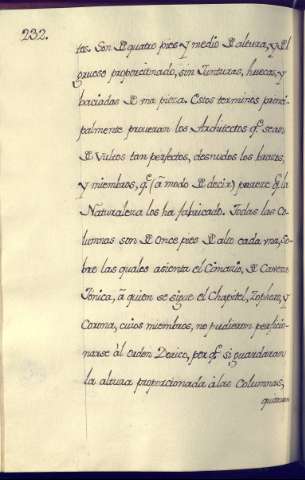 232.
tas. Son de quatro pies y medio de altura, y el
grueso proporcionado, sin Junturas, huecas, y
baciadas de una pieza. Estos terminos princi-
palmente procuran los Architectos q.e sean
de Vultos tan perfectos, desnudos los brazos,
y miembros, q.e (â modo de decir) parece q.e la
Naturaleza los ha fabricado. Todas las Co-
lumnas son de Once pies de alto cada una, so-
bre las quales asienta el Cimacio, de
Jonica, â quien se sigue el Chapitel, Zophoro, y
Corona, cuios miembros, no pudieron perficio-
narse âl orden Dorico, por q.e si guardaran
la altura proporcionada âlas Columnas,